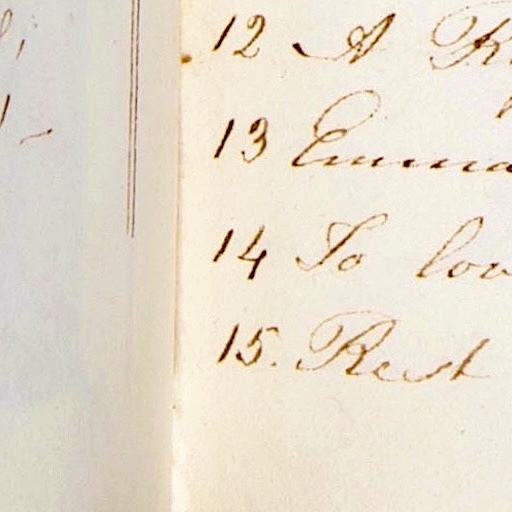 12 A
13 Emma
14 To
15. Rest